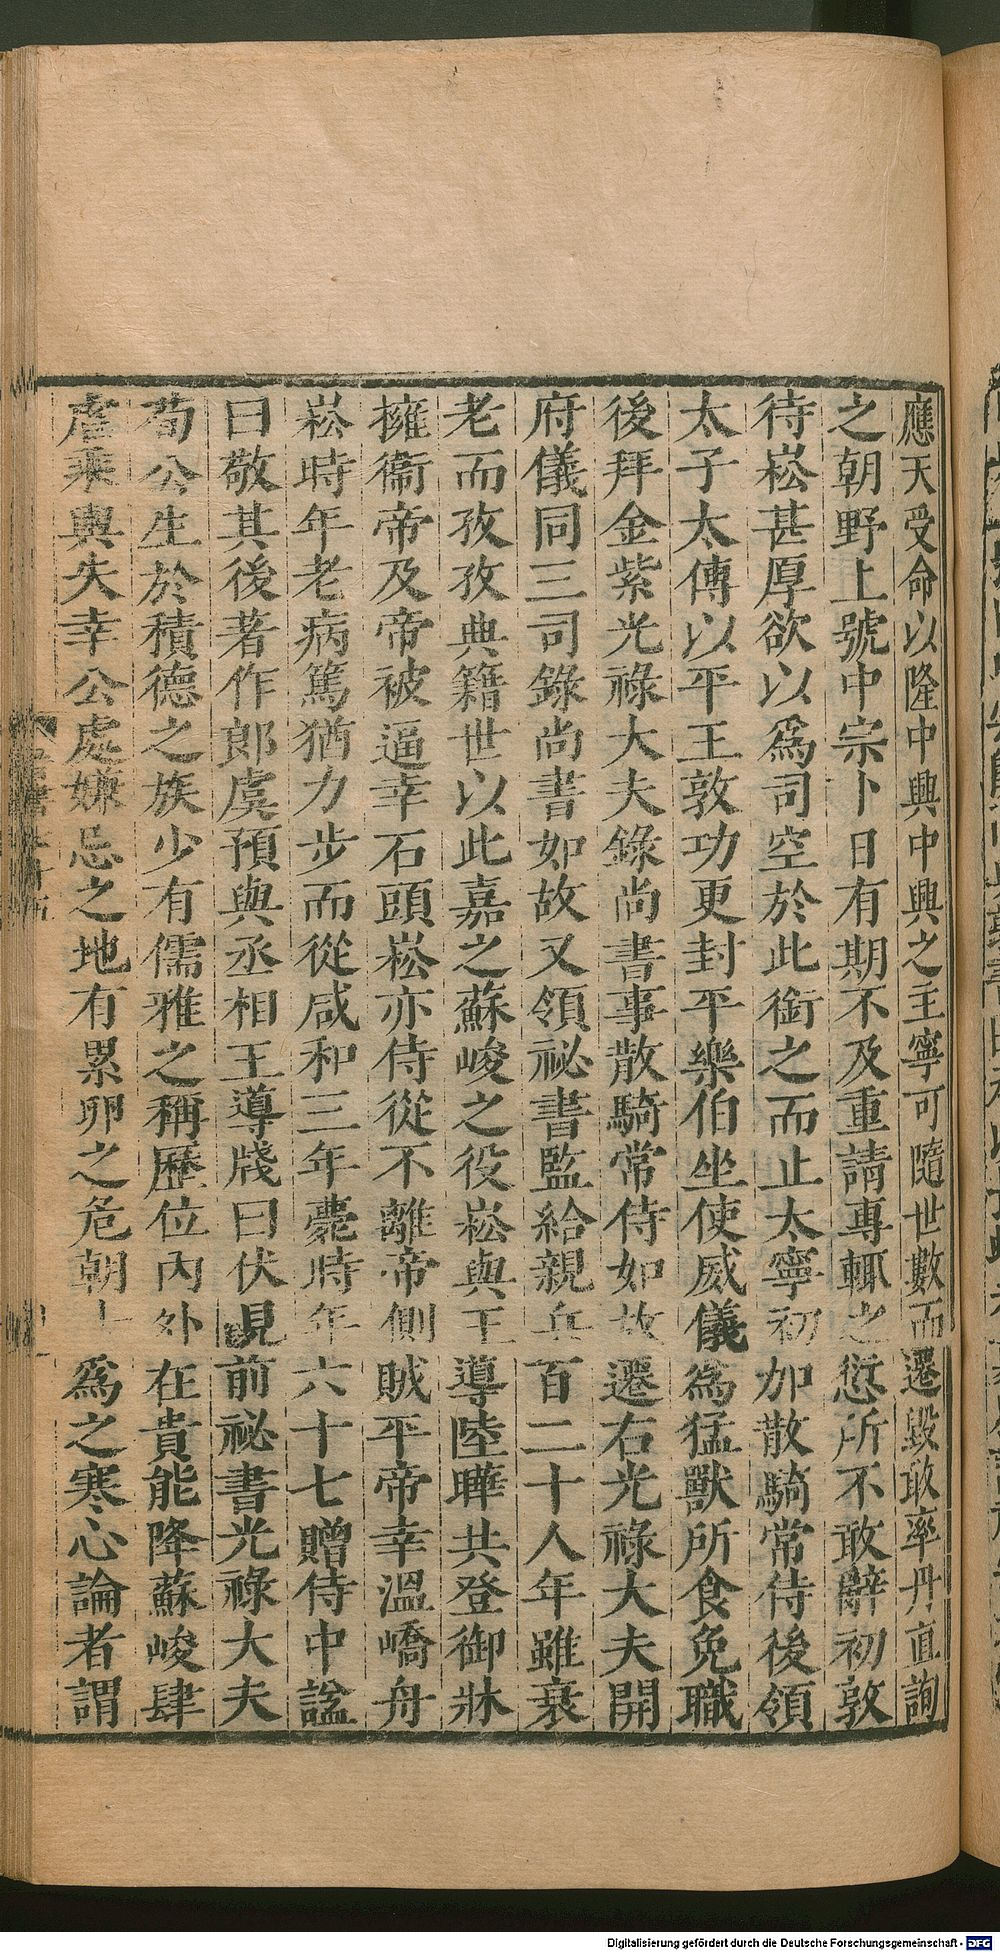 應天受命以隆中興中興之主寧可隨世數而遷毀敢率丹直詢
之朝野上號中宗卜日有期不及重請專輒之愆所不敢辭初敦
待崧甚厚欲以爲司空於此銜之而止太寧初加散騎常侍後領
太子太傅以平王敦功更封平樂伯坐使威儀爲猛獸所食免職
後拜金紫光祿大夫錄尚書事散騎常侍如故遷右光祿大夫開
府儀同三司錄尚書如故又領祕書監給親兵百二十人年雖衰
老而孜孜典籍世以此嘉之蘇峻之役崧與王導陸曄共登御牀
擁衞帝及帝被逼幸石頭崧亦侍從不離帝側賊平帝幸溫嶠舟
崧時年老病篤猶力步而從咸和三年薨時年六十七贈侍中諡
曰敬其後著作郎虞預與丞相王導牋曰伏見前祕書光祿大夫
荀公生於積德之族少有儒雅之稱歷位內外在貴能降蘇峻肆
虐乘輿失幸公處嫌忌之地有累卵之危朝士爲之寒心論者謂
Digitalisierung gefördert durch die Deutsche Forschungsgemeinschaft - DFG